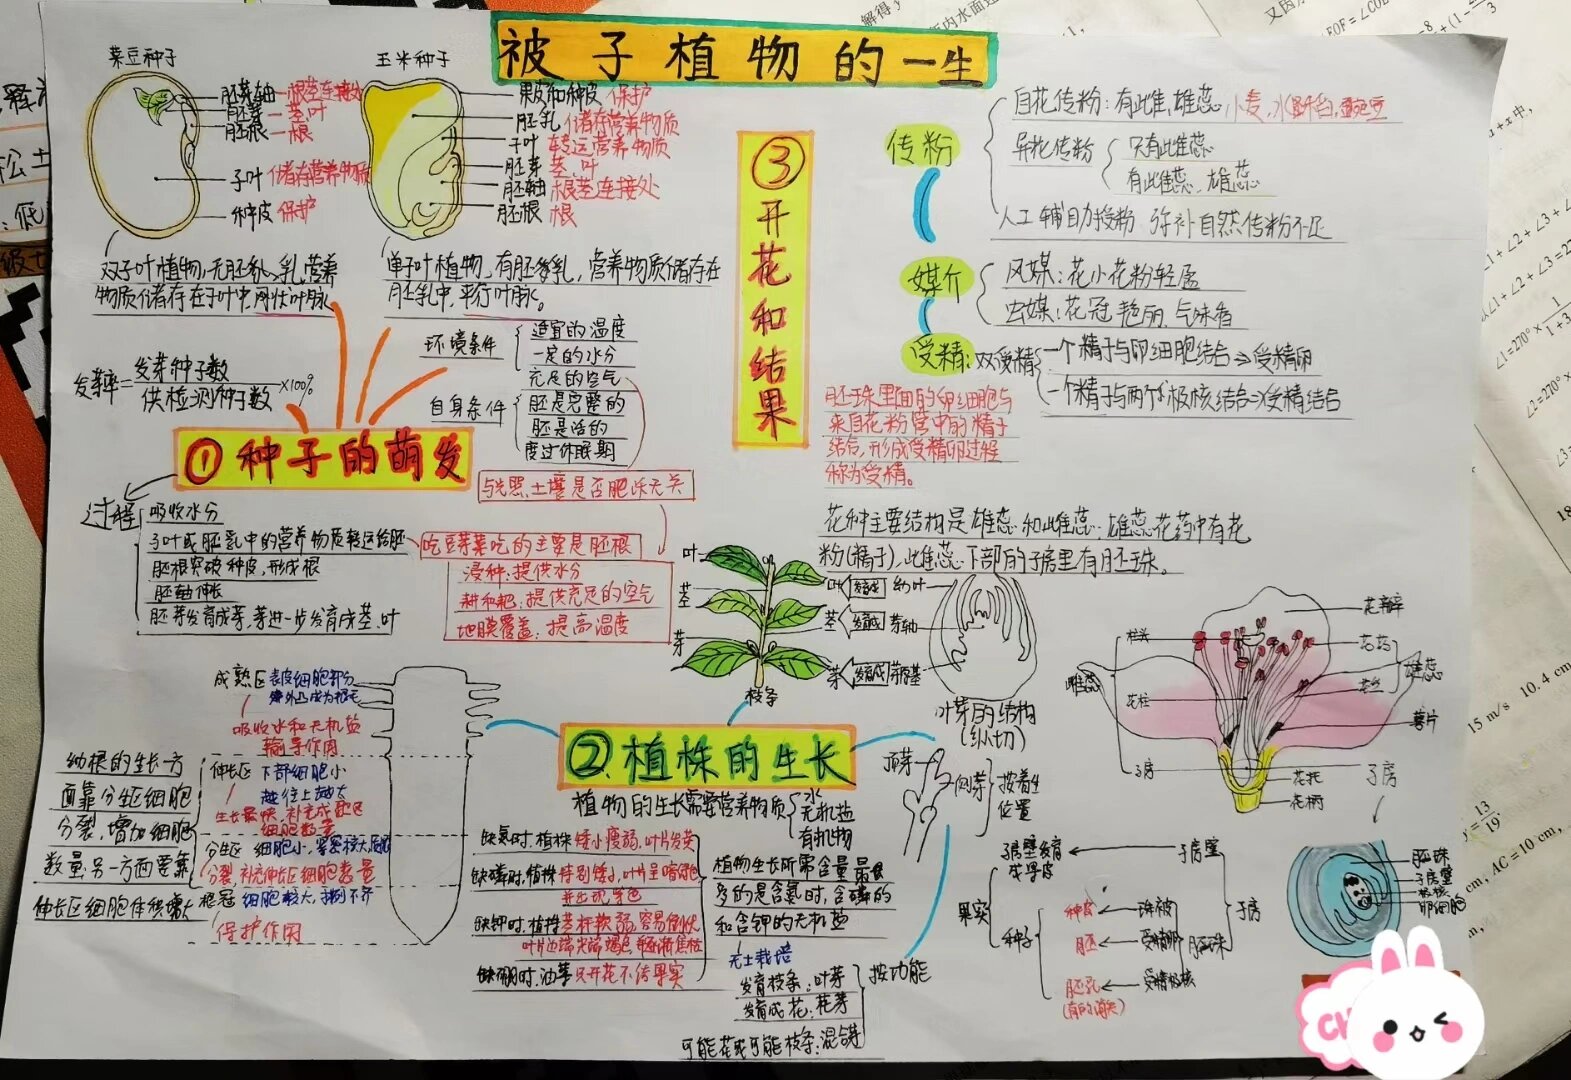 被子植物的一生
菜豆种子
胚芽轴—根茎连接处
胚芽—茎叶
胚根—根
子叶 储存营养物质
种皮 保护
双子叶植物,无胚乳,营养
物质储存在子叶中,网状叶脉
玉米种子
果皮和种皮 保护
胚乳 储存营养物质
子叶 转运营养物质
胚芽 茎、叶
胚轴 根茎连接处
胚根 根
单子叶植物,有胚乳,营养物质储存在
胚乳中,平行叶脉。
发芽率=发芽种子数/供检测种子数×100%
环境条件
适宜的温度
一定的水分
充足的空气
自身条件
胚是完整的
胚是活的
度过休眠期
①种子的萌发
与光照、土壤是否肥沃无关
过程
吸收水分
子叶或胚乳中的营养物质转运给胚
胚根突破种皮,形成根
胚轴伸长
胚芽发育成芽,芽进一步发育成茎、叶
吃豆芽菜吃的主要是胚根
浸种:提供水分
耕和耙:提供充足的空气
地膜覆盖:提高温度
③开花和结果
传粉
自花传粉:有雌,雄蕊 小麦,水稻,豌豆
异花传粉
只有雌蕊
有雌蕊、雄蕊
人工辅助授粉 弥补自然传粉不足
媒介
风媒:花小花粉轻盈
虫媒:花冠艳丽,气味香
受精:双受精
一个精子与卵细胞结合⇒受精卵
一个精子与两个极核结合⇒受精结合
胚珠里面的卵细胞与
来自花粉管中的精子
结合,形成受精卵过程
称为受精。
花种主要结构是雄蕊和雌蕊;雄蕊花药中有花
粉(精子),雌蕊下部的子房里有胚珠。
叶
茎
芽
枝条
叶 发育成 幼叶
茎 发育成 芽轴
芽 发育成 芽原基
叶芽的结构
(纵切)
花瓣
柱头
花药
雌蕊
花柱
花丝
雄蕊
萼片
子房
花托
花柄
子房
胚珠
子房壁
极核
卵细胞
②植株的生长
成熟区 表皮细胞部分
向外凸成为根毛
吸收水和无机盐
输导作用
伸长区 下部细胞小
越往上越大
生长最快,补充成熟区
细胞数量
分裂,补充伸长区细胞数量
根冠 细胞较大,排列不齐
保护作用
幼根的生长一方
面靠分生区细胞
分裂,增加细胞
数量;另一方面要靠
伸长区细胞体积增大
植物的生长需要营养物质
水
无机盐
有机物
缺氮时,植株矮小瘦弱,叶片发黄
缺磷时,植株特别矮小,叶片呈暗绿色
并出现紫色
缺钾时,植株茎秆软弱,容易倒伏
叶片边缘尖端褐色
缺硼时,油菜只开花不结果实
植物生长所需含量最
多的是含氮的,含磷的
和含钾的无机盐
无土栽培
顶芽
侧芽
按着生
位置
按功能
发育枝条:叶芽
发育成花:花芽
可能花或可能枝条:混合芽
果实
子房壁发育
成果皮
子房壁
种子
种皮
珠被
胚
受精卵
胚乳
(有的消失)
受精极核
胚珠
子房